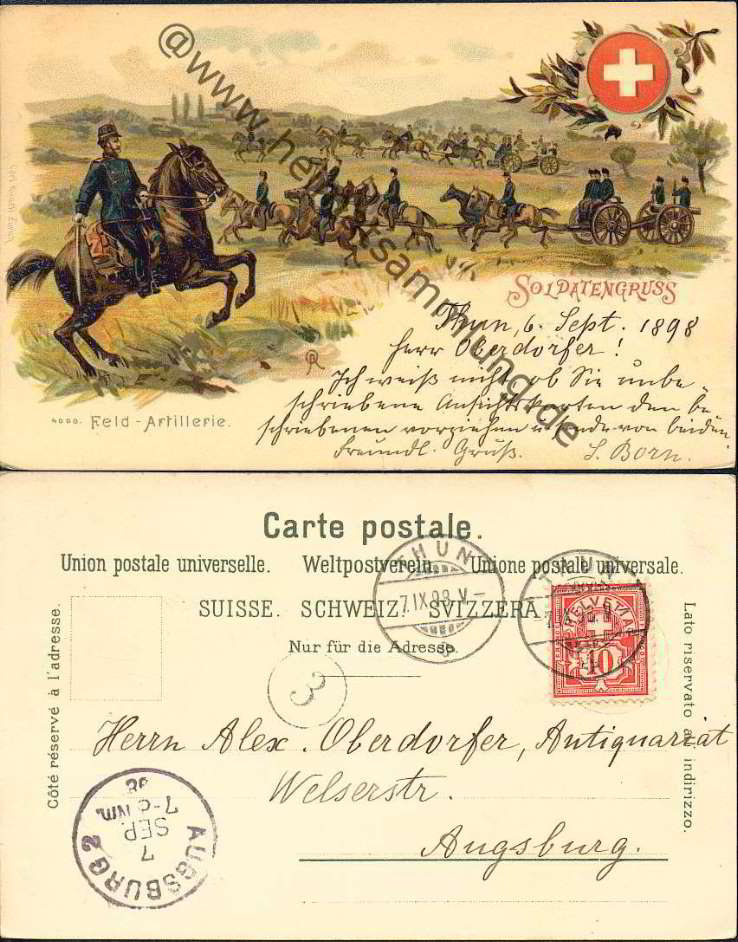 @www.he
tsammlung.de
SOLDATENGRUSS
Thun, 6. Sept. 1898
Herr Oberdorfer!
Ich weiß nicht, ob Sie unbe-
schriebene Ansichtskarten den be-
schriebenen vorziehen u. sende von beiden.
Freundl. Gruß. S. Born.
R
4000. Feld-Artillerie.
Carte postale.
Union postale universelle. Weltpostverein. Unione postale universale.
SUISSE. SCHWEIZ. SVIZZERA.
Nur für die Adresse.
Côté réservé à l'adresse.
Lato riservato all' indirizzo.
THUN
7.IX.98.V-
THUN
HELVETIA
10
3
Herrn Alex. Oberdorfer, Antiquariat
Welserstr.
Augsburg.
AUGSBURG 2
7
SEP.
7-8 Nm.
98